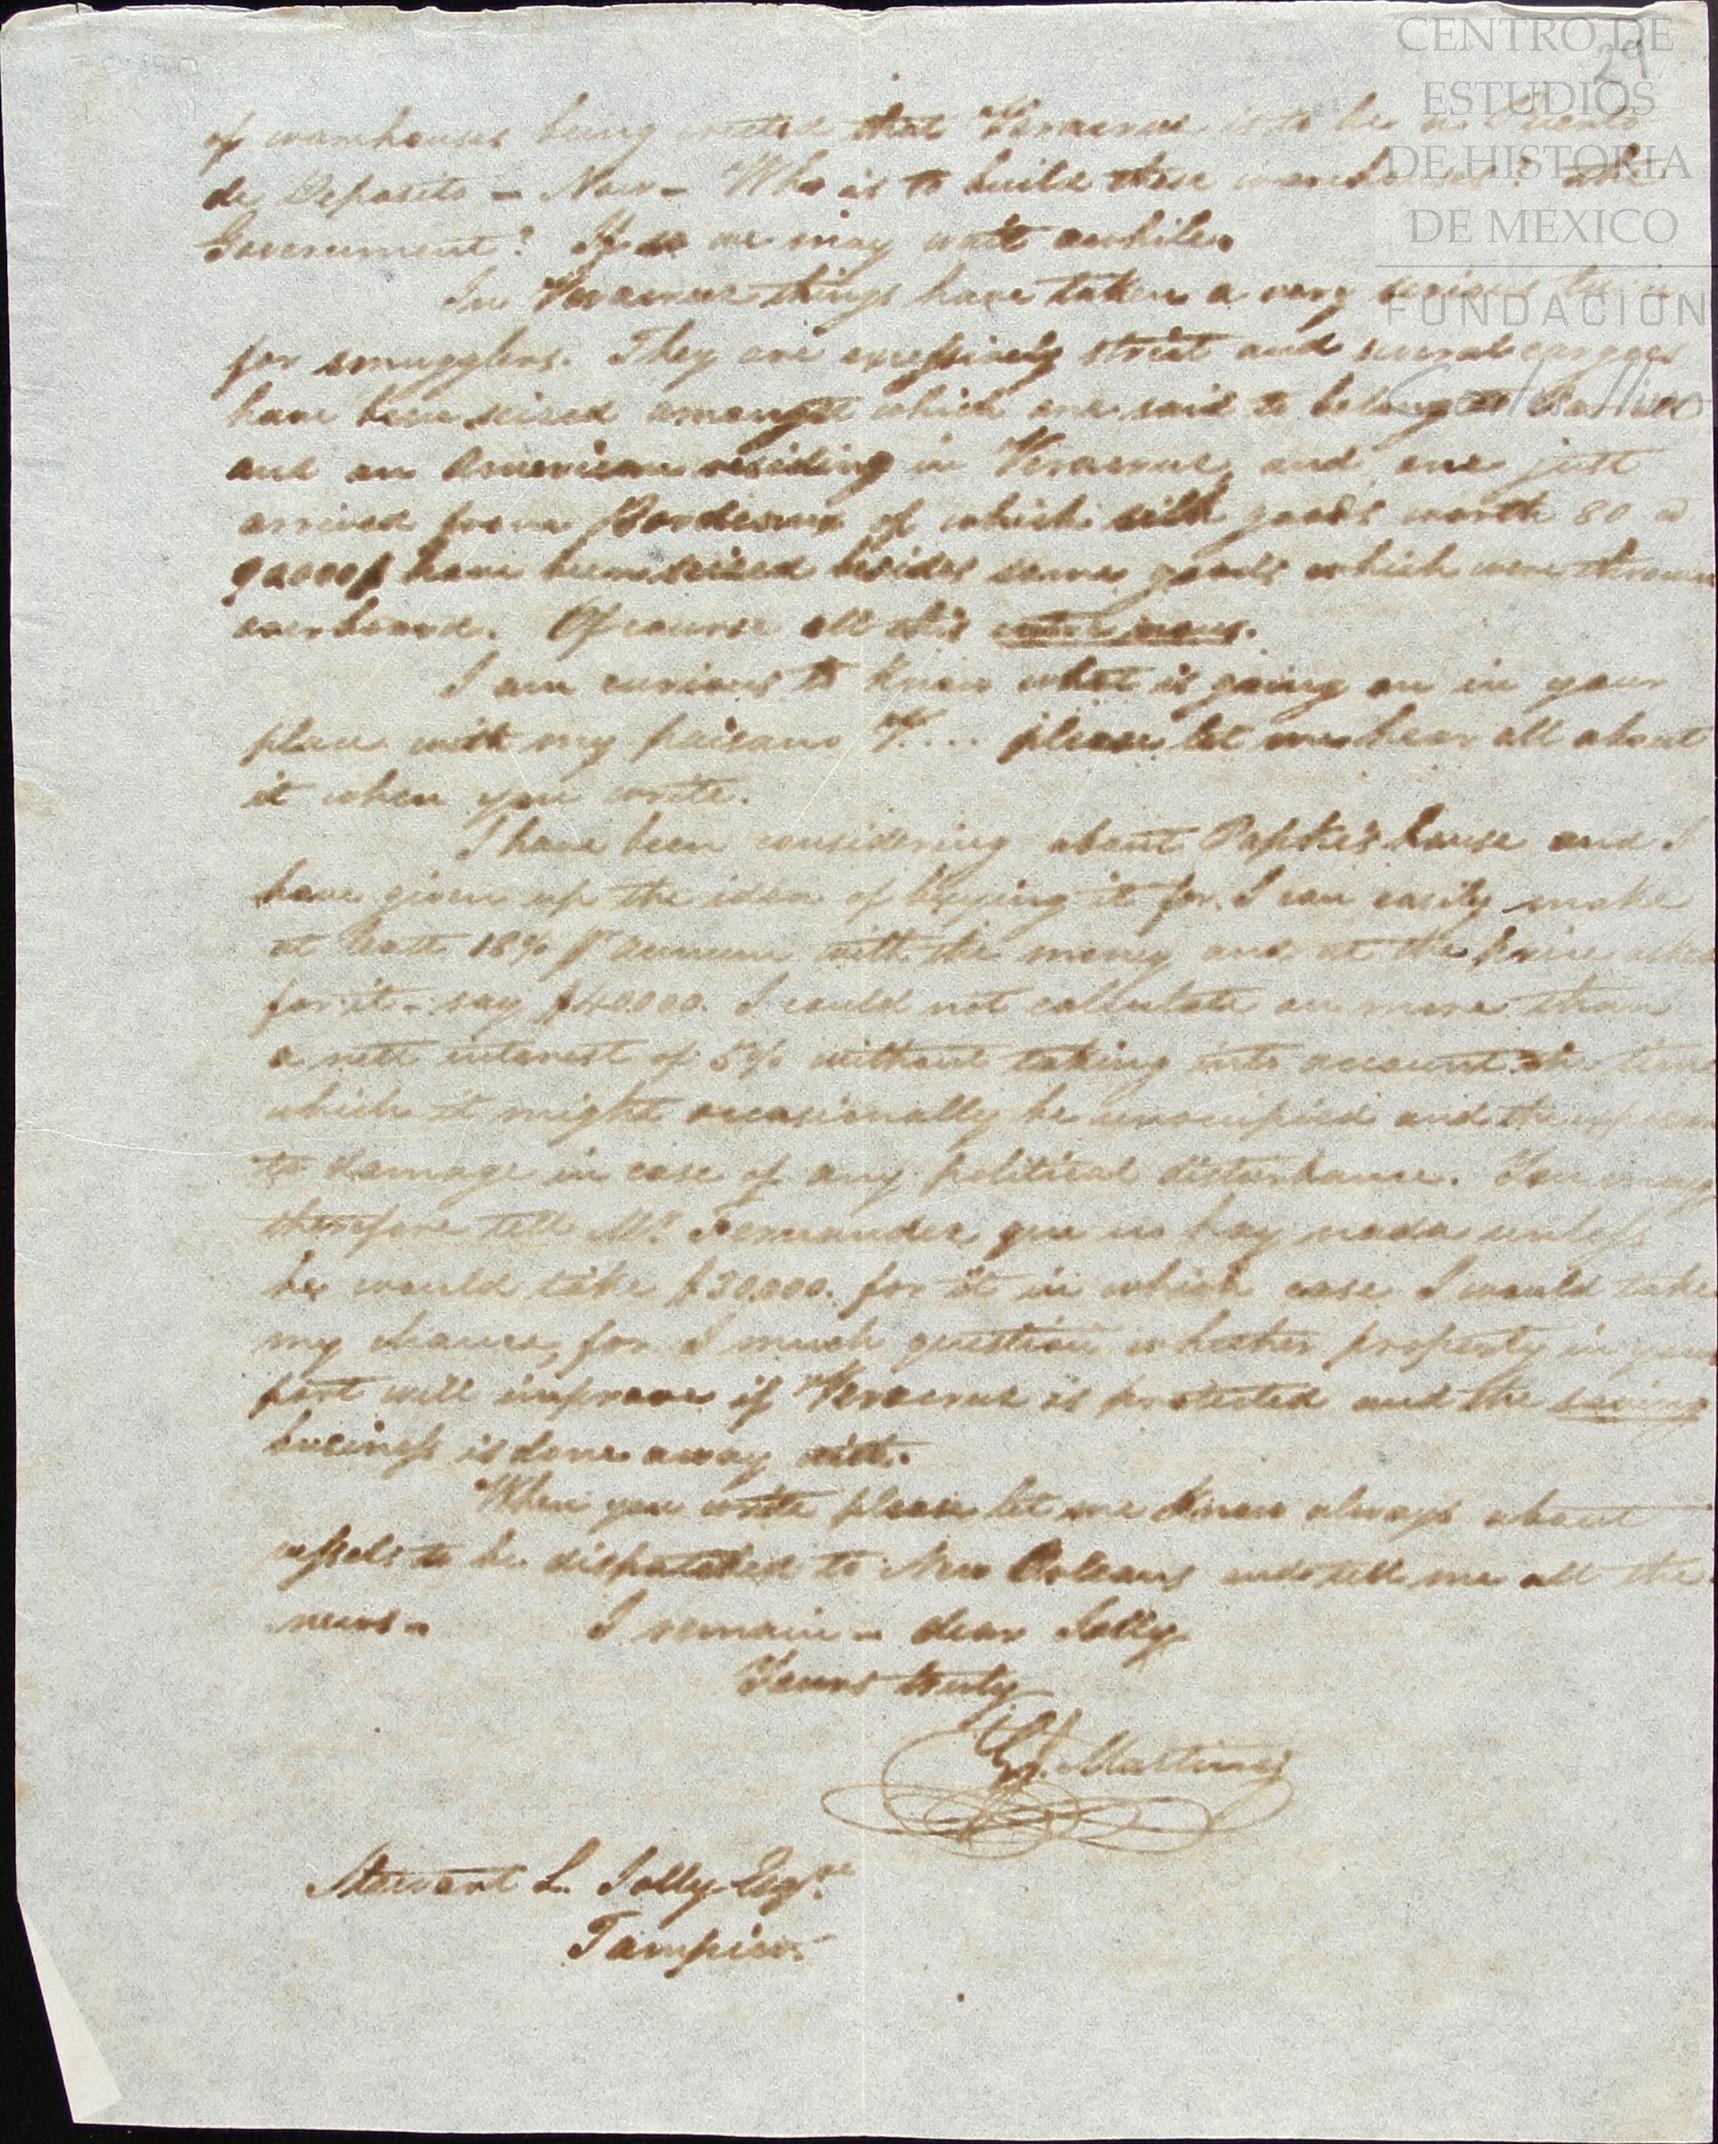 29
CENTRO DE
ESTUDIOS
DE HISTORIA
DE MÉXICO
FUNDACIÓN
of warehouses being erected that Veracruz is to be a Puerto
de Deposito – Now – Who is to build these warehouses? the
Government? If so we may wait awhile.
In Veracruz things have taken a very serious turn
for smugglers. They are excessively strict and several cargoes
have been seized amongst which one said to belong to
and an American residing in Veracruz and one just
arrived from Bordeaux of which silk goods worth 80 a
90000$ have been seized besides some goods which were thrown
overboard. Of course all this entre nous.
I am curious to know what is going on in your
place with my paisano F.... please let me hear all about
it when you write.
I have been considering about house and I
have given up the idea of buying it for I can easily make
at least 18% p annum with the money and at the price asked
for it – say $40.000. I could not calculate on more than
a nett interest of 5% without taking into account the time
which it might occasionally be unoccupied and the
to damage in case of any political disturbance. You may
therefore tell Mr. Fernandez que no hay nada unless
he would take $30,000. for it in which case I would take
my chance, for I much question whether property in your
port will improve if Veracruz is protected and the saving
business is done away with.
When you write please let me know always about
vessels to be dispatched to New Orleans and tell me all the
news – I remain – dear Jolly
Yours truly
Martinez
Stewart L. Jolly Esqre
Tampico.